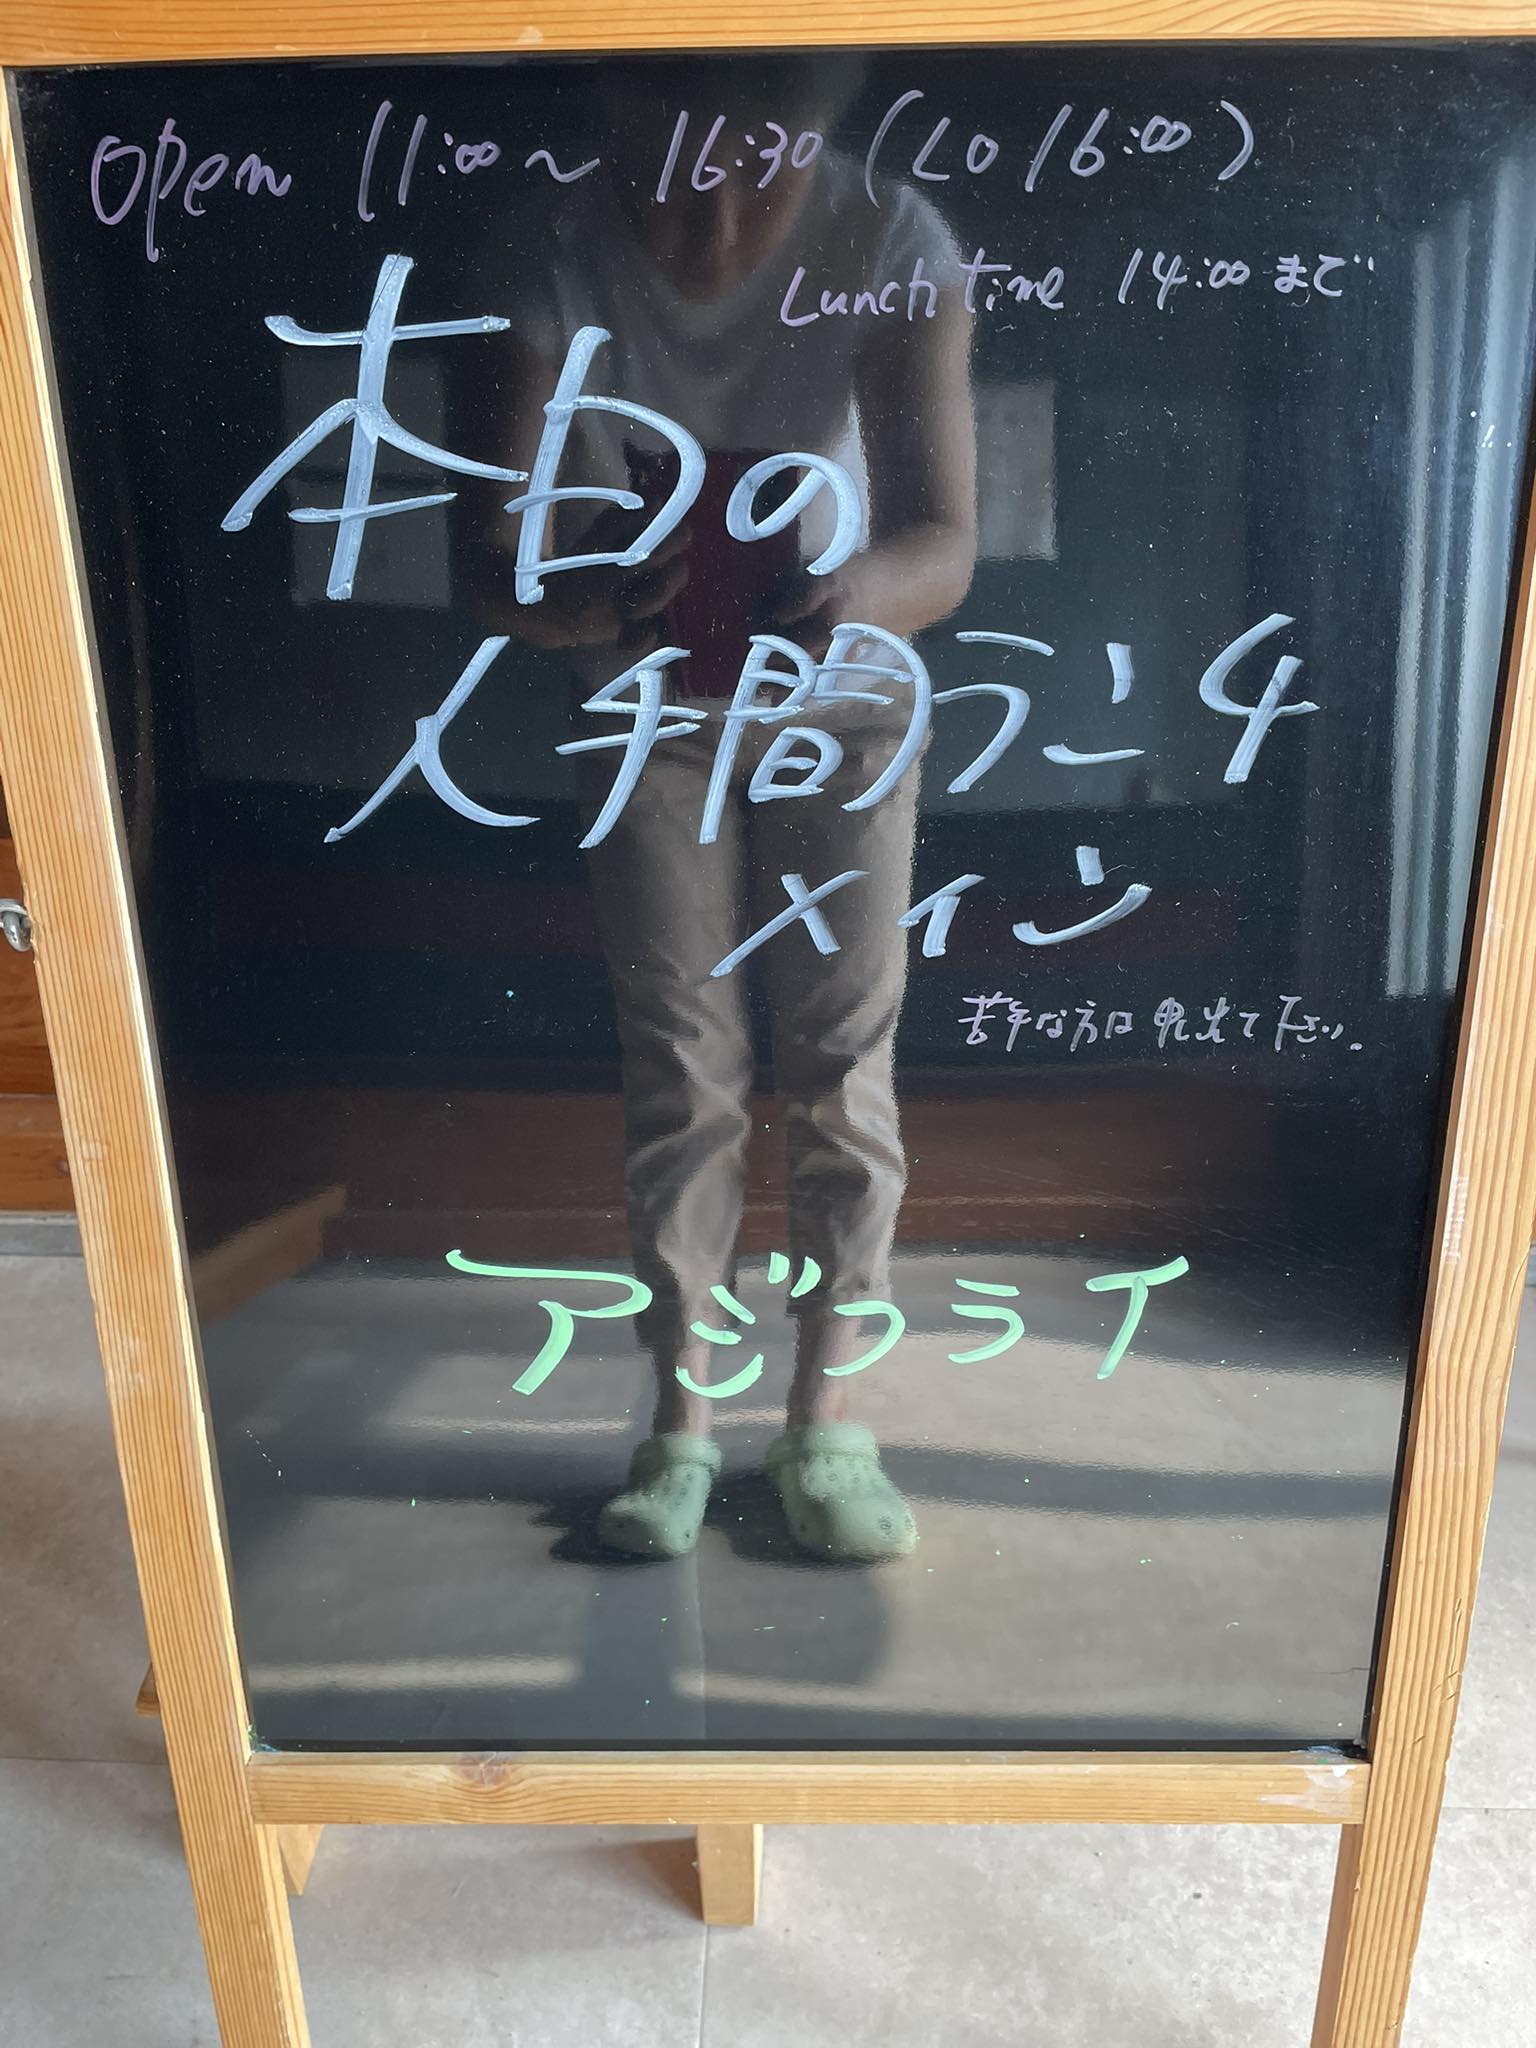 Open 11:00～16:30(Lo 16:00)
Lunch time 14:00まで
本日の
人手間ランチ
メイン
苦手な方は申し出て下さい。
アジフライ